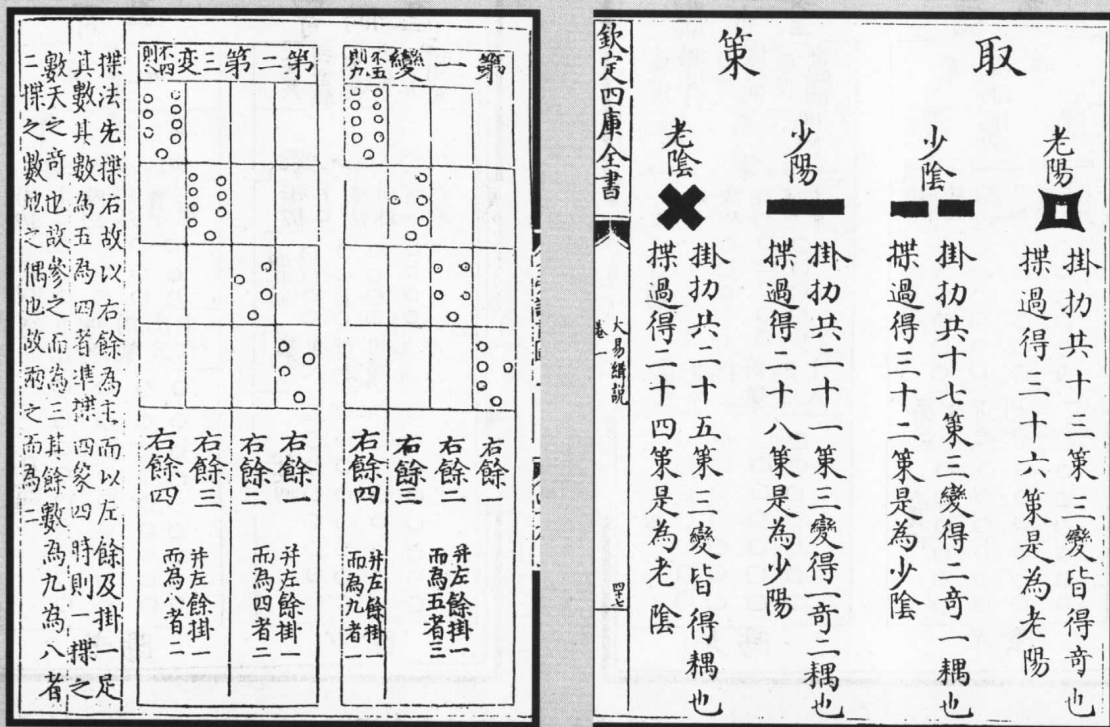 取策
老陽
掛扐共十三策三變皆得奇也
揲過得三十六策是為老陽
少陰
掛扐共十七策三變得二奇一耦也
揲過得三十二策是為少陰
少陽
掛扐共二十一策三變得一奇二耦也
揲過得二十八策是為少陽
老陰
掛扐共二十五策三變皆得耦也
揲過得二十四策是為老陰
欽定四庫全書
大易緝說
卷一
第一變
不五
則九
右餘一
右餘二
右餘三
并左餘掛一
而為五者三
右餘四
并左餘掛一
而為九者一
第二第三变
不四
則八
右餘一
右餘二
并左餘掛一
而為四者二
右餘三
右餘四
并左餘掛一
而為八者二
揲法先揲右故以右餘為主而以左餘及掛一足
其數其數為五為四者準揲四象四時則一揲之
數天之奇也故參之而為三其餘數為九為八者
二揲之數地之偶也故兩之而為二